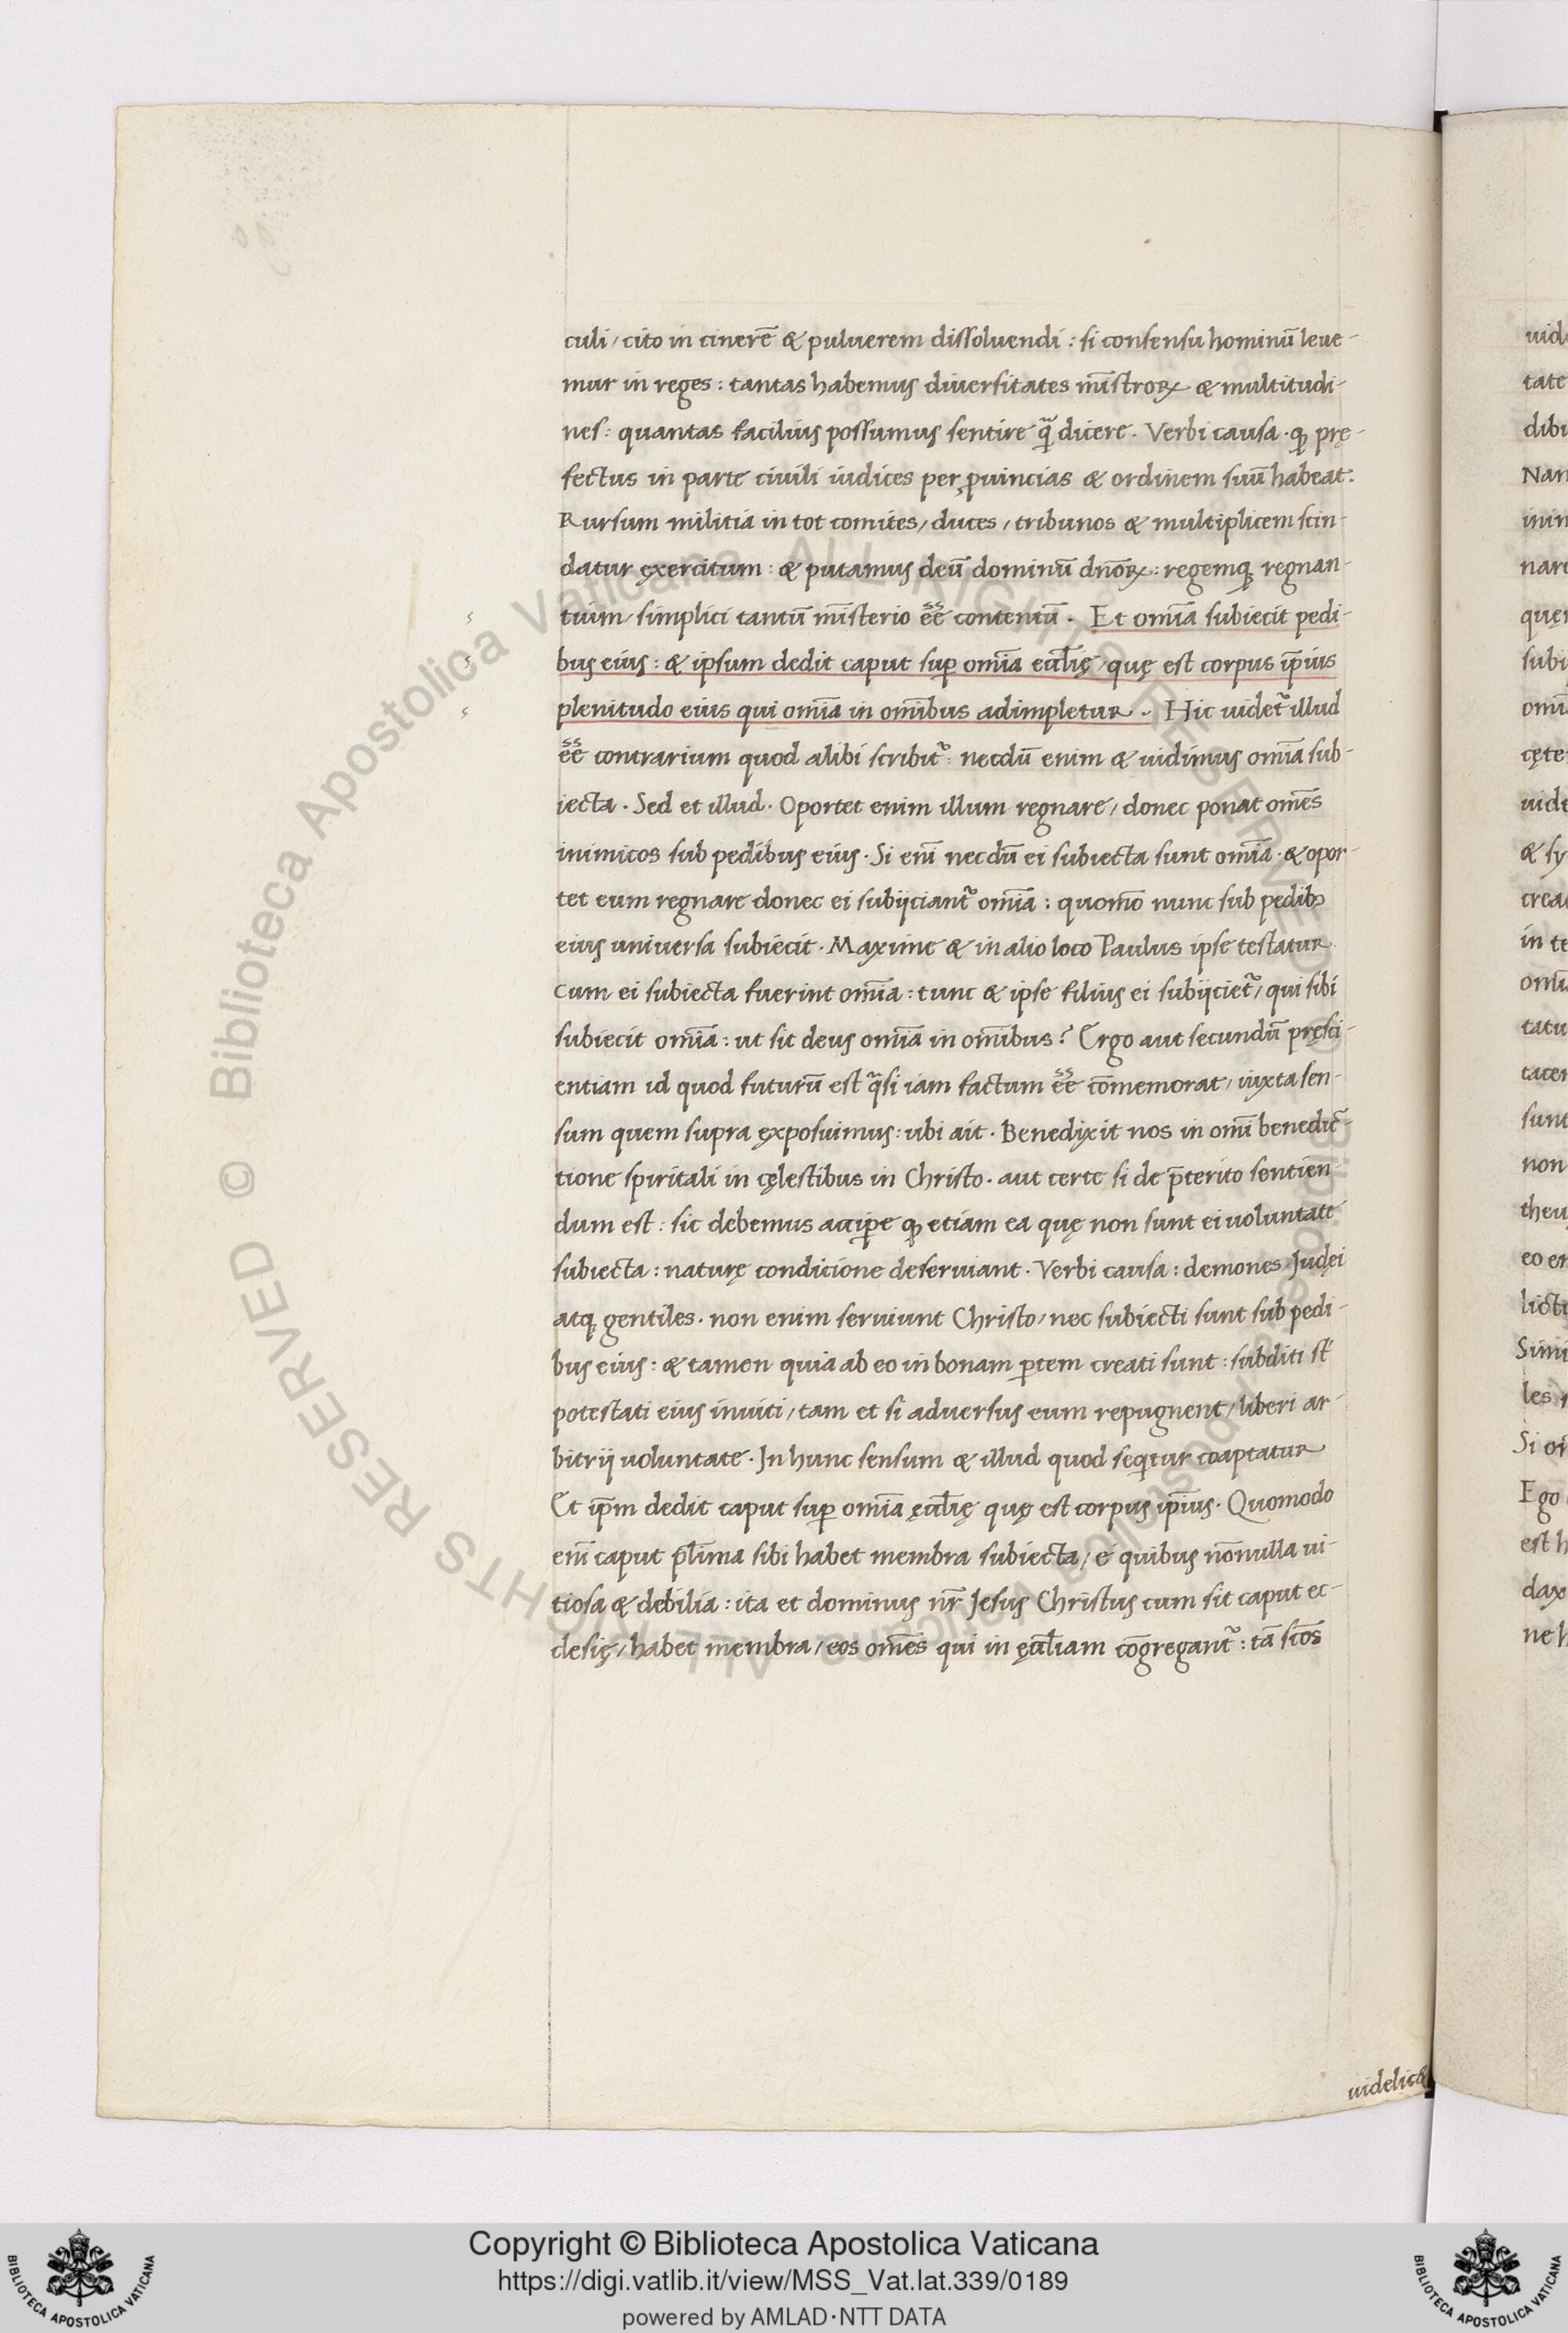 culi / cito in cinerē & puluerem dissoluendi : si consensu hominū leue-
mur in reges : tantas habemus diuersitates mīstroꝝ & multitudi-
nes : quantas facilius possumus sentire q̄ dicere . Verbi causa . ꝙ prę-
fectus in parte ciuili iudices per ꝓuincias & ordinem suū habeat :
Rursum militia in tot comites / duces / tribunos & multiplicem scin-
datur ęxercitum : & putamus deū dominū dn̄oꝝ : regemq; regnan-
tium / simplici tantū mīsterio eē contentū . Et om̄ia subiecit pedi-
bus eius : & ipsum dedit caput suꝑ om̄ia ecl̄ię / quę est corpus ip̄ius
plenitudo eius qui om̄ia in om̄ibus adimpletur . Hic uidet᷑ illud
eē contrarium quod alibi scribit᷑ : necdū enim & uidimus om̄ia sub-
iecta . Sed et illud . Oportet enim illum regnare / donec ponat om̄es
inimicos sub pedibus eius . Si enī necdū ei subiecta sunt om̄ia . & opor-
tet eum regnare donec ei subijciant᷑ om̄ia : quom̄o nunc sub pedibꝰ
eius uniuersa subiecit . Maxime & in alio loco Paulus ipse testatur
cum ei subiecta fuerint om̄ia : tunc & ipse filius ei subijciet᷑ / qui sibi
subiecit om̄ia : ut sit deus om̄ia in om̄ibus ? Ergo aut secundū pręsci-
entiam id quod futurū est q̄si iam factum eē cōmemorat / iuxta sen-
sum quem supra ęxposuimus : ubi ait . Benedixit nos in om̄i benedic̄-
tione spiritali in cęlestibus in Christo . aut certe si de p̄terito sentien-
dum est : sic debemus acciꝑe ꝙ etiam ea quę non sunt ei uoluntate
subiecta : naturę condicione deseruiant . Verbi causa : demones Judęi
atq; gentiles . non enim seruiunt Christo / nec subiecti sunt sub pedi-
bus eius : & tamen quia ab eo in bonam ꝑtem creati sunt : subditi st̄
potestati eius inuiti / tam et si aduersus eum repugnent / liberi ar-
bitrij uoluntate . In hunc sensum & illud quod seqtur coaptatur
Et ip̄m dedit caput suꝑ om̄ia ęcl̄ię quę est corpus ip̄ius . Quomodo
enī caput pl̄ima sibi habet membra subiecta / e quibus nōnulla ui-
tiosa & debilia : ita et dominus nr̄ Jesus Christus cum sit caput ec-
clesię / habet membra / eos om̄es qui in ęcl̄iam cōgregant᷑ : tā sc̄os
uidelic&
© Biblioteca Apostolica Vaticana ALL RIGHTS RESERVED
Copyright © Biblioteca Apostolica Vaticana
https://digi.vatlib.it/view/MSS_Vat.lat.339/0189
powered by AMLAD·NTT DATA
BIBLIOTECA APOSTOLICA VATICANA
BIBLIOTECA APOSTOLICA VATICANA